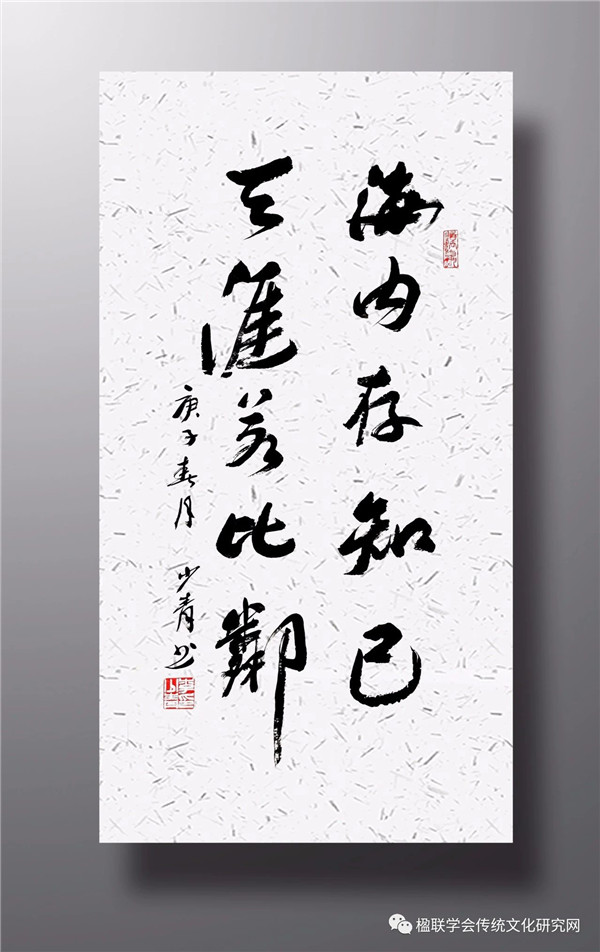 海内存知己
天涯若比鄰
庚子春月 少青书
楹联学会传统文化研究网